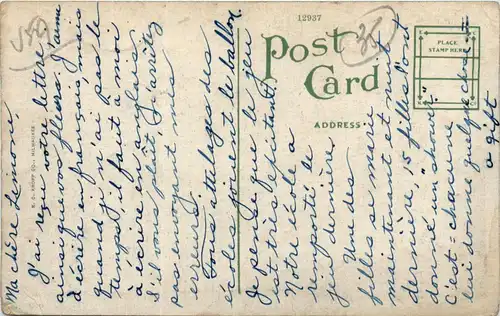 12937
Post
Card
PLACE
STAMP HERE
ADDRESS
Ma chère
J'ai reçu votre lettre
ainsi que vos fleurs. J'aime
d'écrire en français, mais
quand je n'ai pas le
temps, j'il fait à moi
à écrire en anglais.
S'il vous plaît, n'arrêtez
pas envoyant mes
erreurs.
Tous attelages des
écoles jouent le ballon.
Je pense que le jeu
est très excitant.
Notre école a
remporté le
jeu dernière.
Une des
filles se marie
maintenant et nuit
dernière, 15 filles l'ont
donné "a shower"
c'est-chacune
lui donne quelque chose
a gift